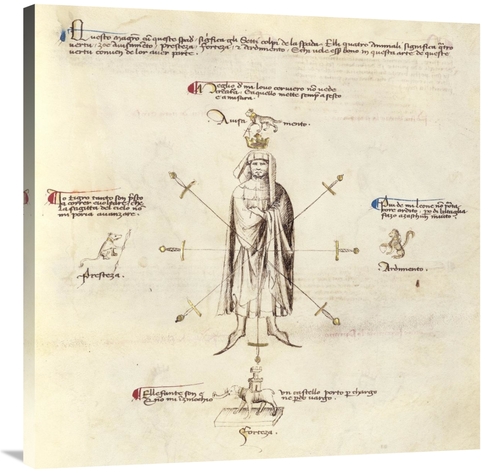 Questo magistro cum queste spade significa gli Setti colpi de la spada. Elli quatro animali significa quatro
vertu, zoe avisamento, Presteza, Forteza, & Ardimento. E chi vole esser bom in questa arte de queste
vertu conven de lor aver parte.
Meglio de mi lovo cervero non vede
creatura. E aquello mette sempre a sesto
e a misura.
Avisa mento.
Io tigro tanto son presto
a correr e voltare, che
la sagitta del cielo non
mi poria avanzare.
Più de mi leone non porta
core ardito, però di bataglia
fazo a zaschun invito.
Presteza.
Ardimento.
Ellefante son e un castello porto per chargho
E non mi inzenochio ne perdo vargho.
Forteza.